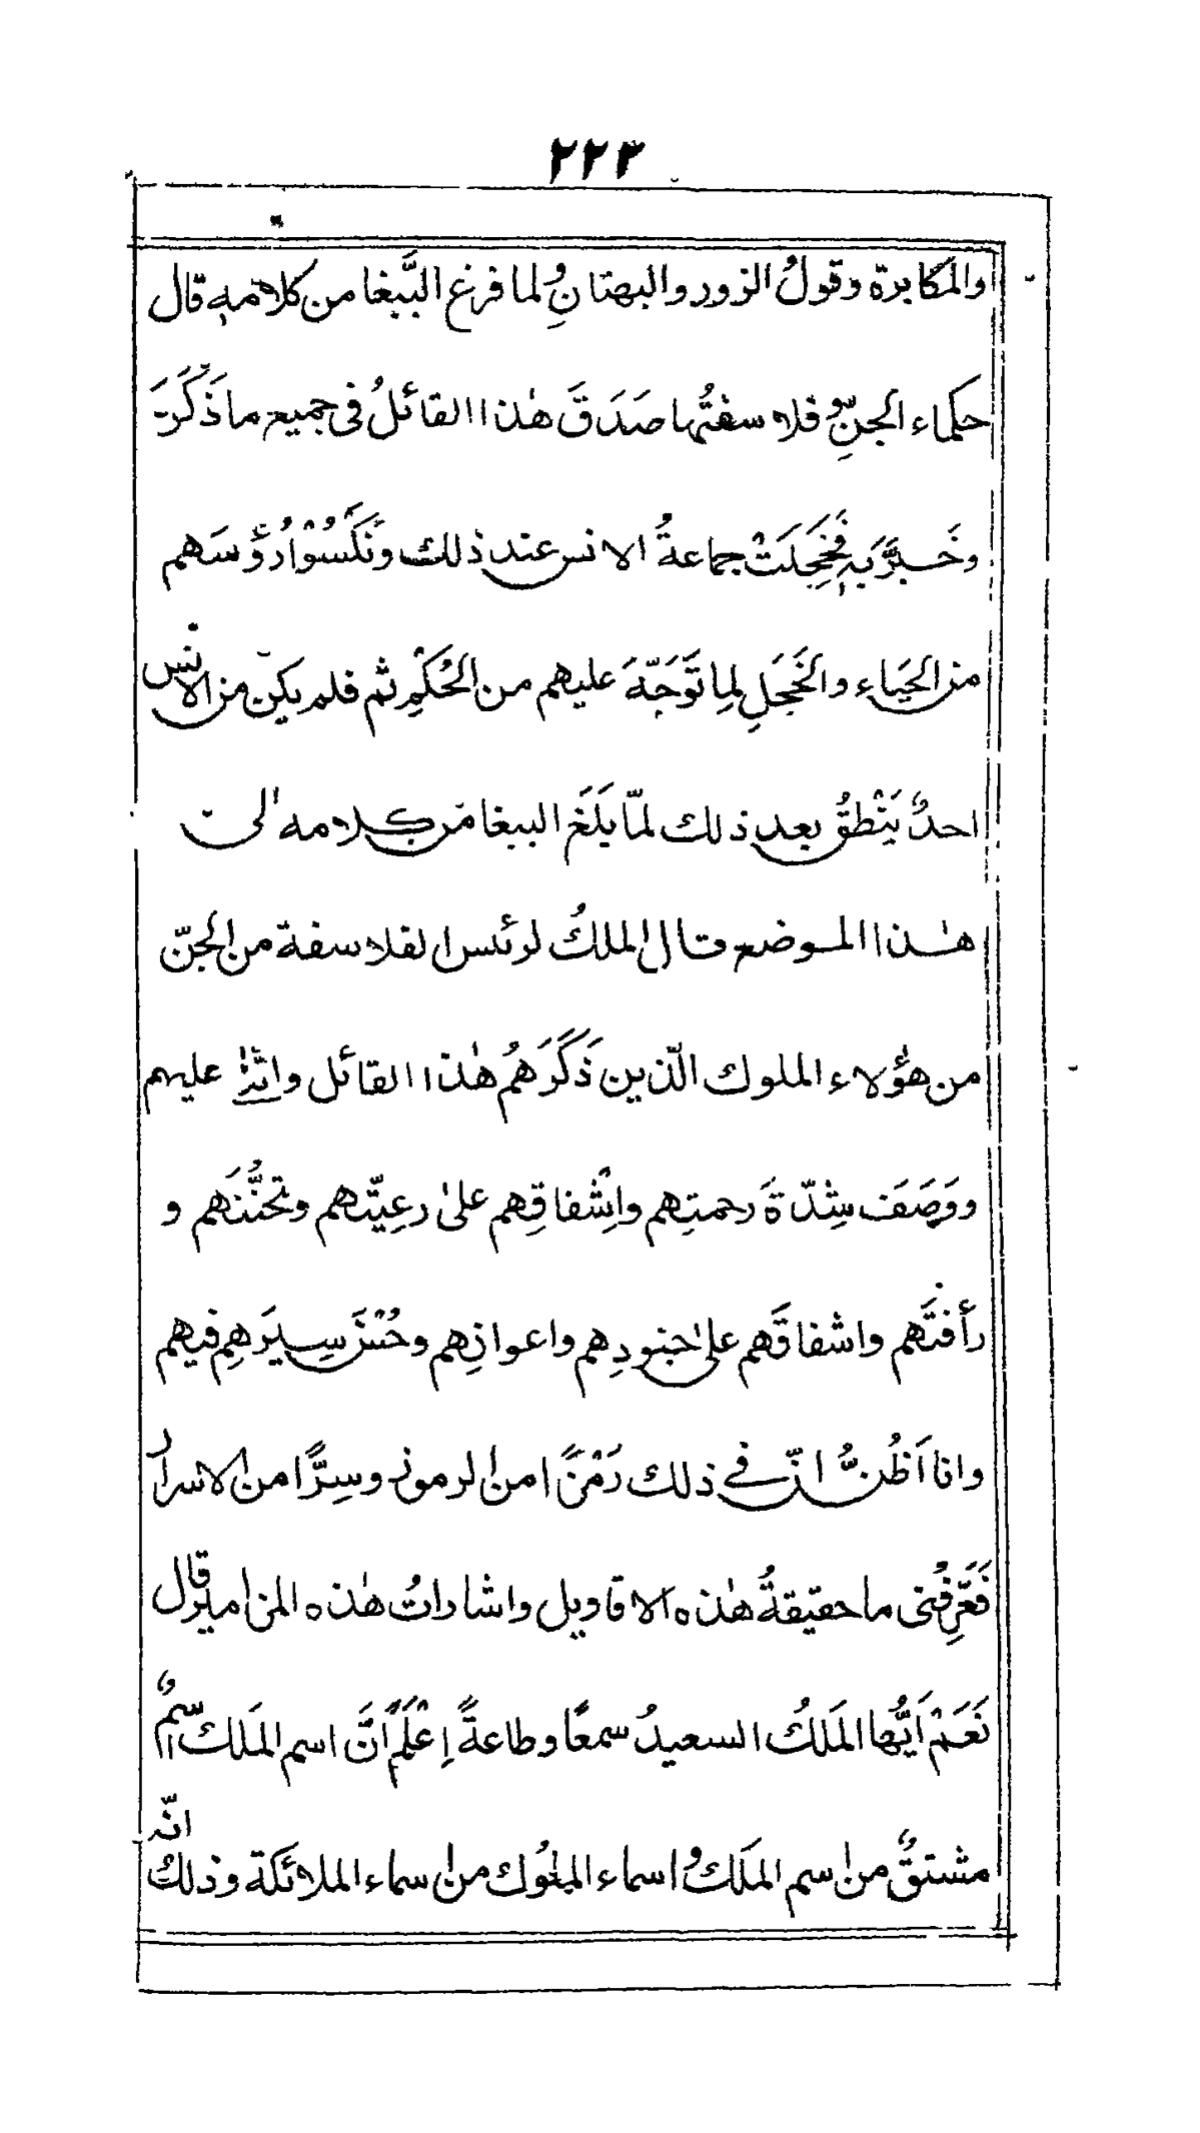 ٢٢٣
والمكابرة وقولُ الزور والبهتانِ ولما فرغ البَّبغا من كلامهٖ قال
حكماء الجنِّ و فلاسفتُها صَدَقَ هٰذا القائلُ فى جميع ما ذَكَرَ
وخَبَّرَ بهٖ فَخَجَلَتْ جماعةُ الانس عند ذلك ونَكَّسُوْا رُؤُسَهم
من الحَياء والخَجَلِ لِما تَوَجَّهَ عليهم من الحُكْمِ ثم فلم يكن من الانس
احدٌ يَنْطِقُ بعد ذلك لمّا بَلَغَ الببغا من كلامه الى
هٰذا الموضع قال الملكُ لرئس الفلاسفة من الجنّ
من هٰؤلاء الملوك الّذين ذَكَرَهُم هٰذا القائل واثنٰى عليهم
ووَصَفَ شِدّةَ رحمتِهم واِشْفاقِهم علىٰ رعِيّتهم وتحنُّنَهم و
رأفتَهم واشفاقَهم علىٰ جنودِهم واعوانِهم وحُسْنَ سِيَرَهِم فيهم
وانا اَظُنُّ انّ فے ذلك رَمْزًا من الرموز وسِرًّا من الاسرار
فَعَرِّفْنى ما حقيقةُ هٰذه الاقاويل واشاراتُ هٰذه المزامير قال
نَعَمْ اَيُّها المَلَكُ السعيدُ سمعًا وطاعةً اِعْلَمْ اَنَّ اسم المَلَك اسمٌ
مشتقٌ من اسم المَلَك و اسماء المُلُوك من اسماء الملائكة وذلك انّه